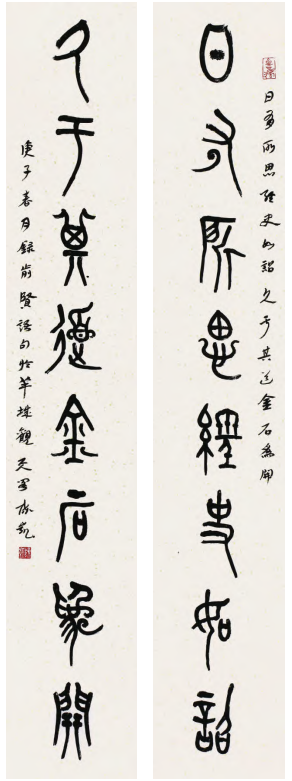 日有所思經史如詔久于其道金石為開
日有所思經史如詔
久于其道金石為開
庚子春月錄前賢語句於